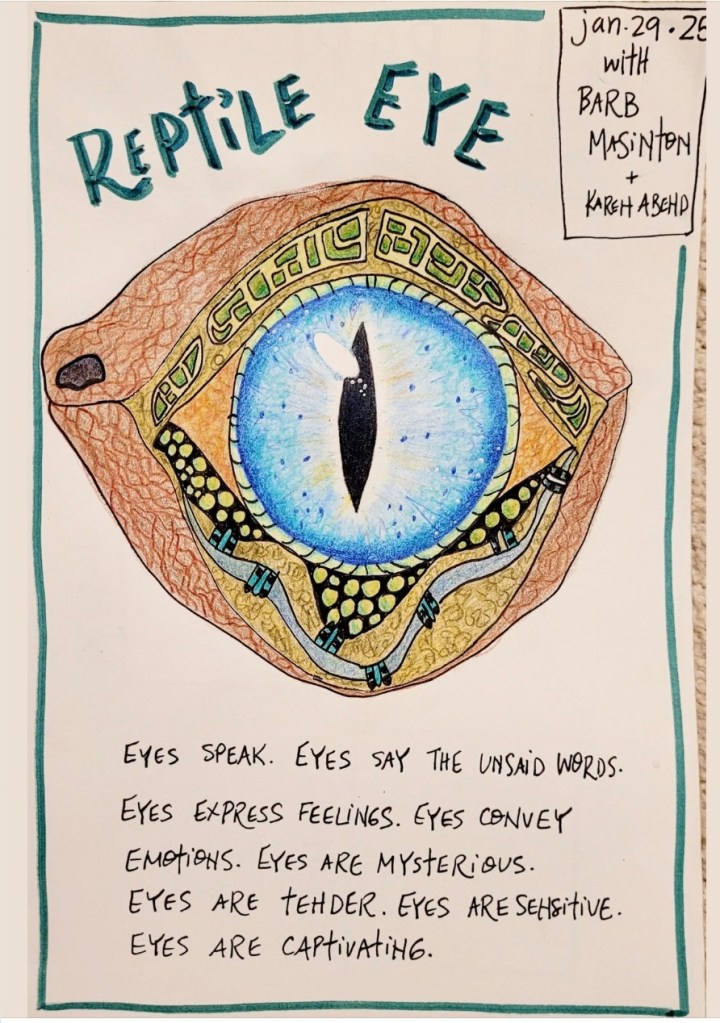 REPTiLE EYE
jan.29.25
with
BARB
MASiNTON
+
KAREN ABEND
EYES SPEAK. EYES SAY THE UNSAiD WORDS.
EYES EXPRESS FEELiNGS. EYES CONVEY
EMOTiONS. EYES ARE MYSTERiOUS.
EYES ARE TENDER. EYES ARE SENSiTiVE.
EYES ARE CAPTiVATiNG.